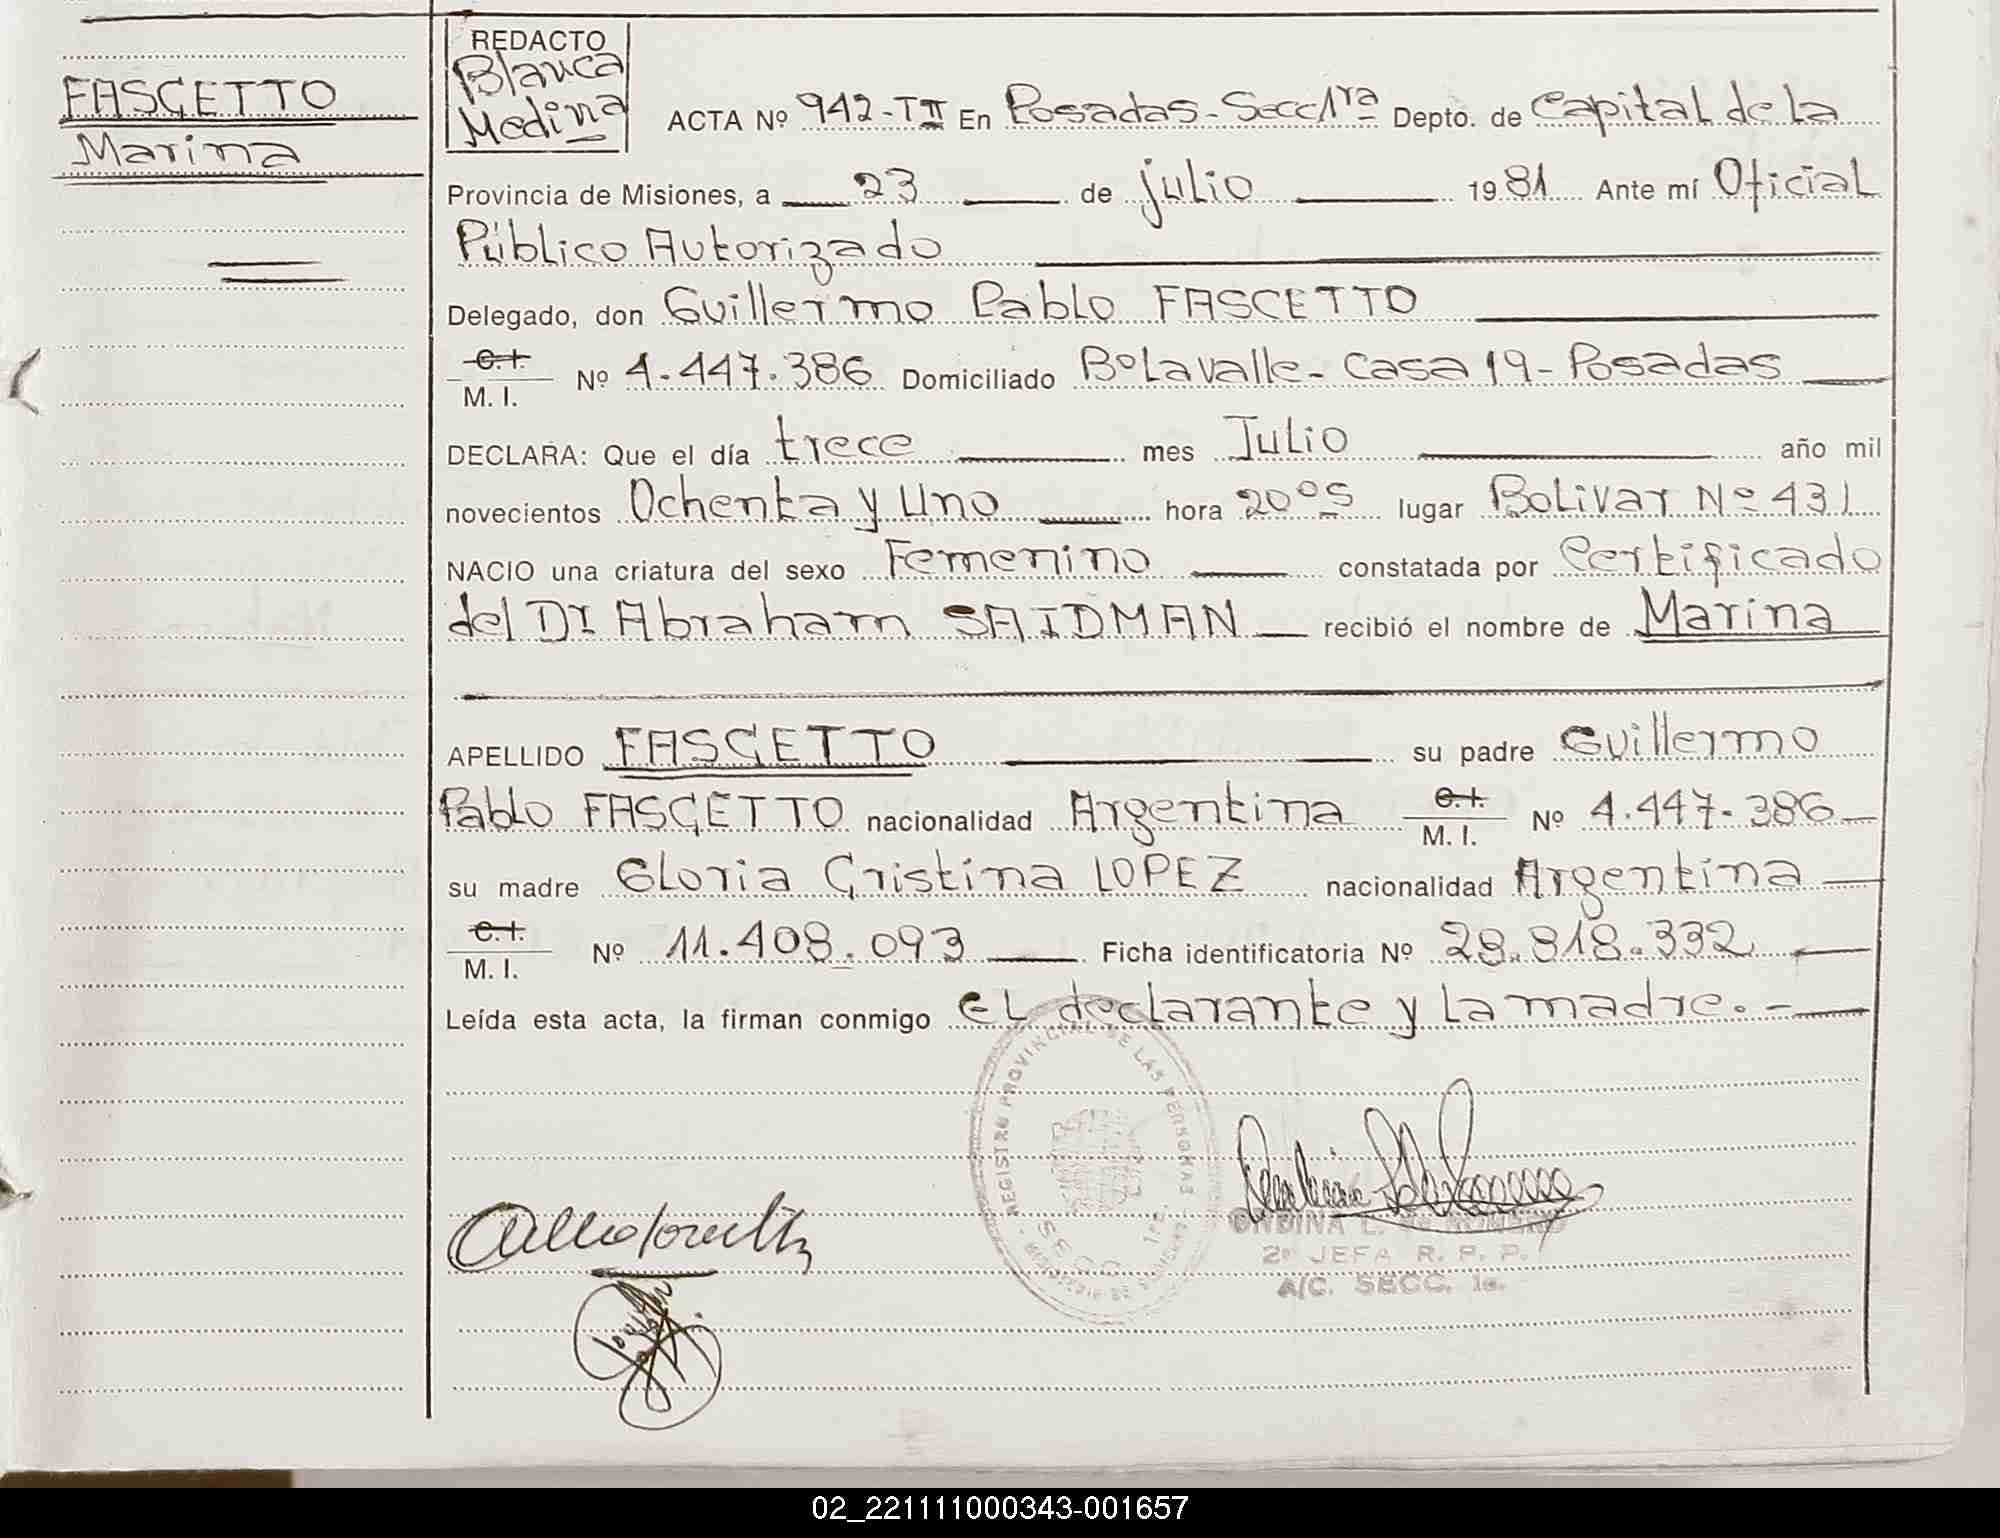 FASCETTO
Marina
REDACTO
Blanca
Medina
ACTA Nº 942-TII En Posadas-Secc1ra Depto. de Capital de la
Provincia de Misiones, a 23 de julio 1981 Ante mí Oficial
Público Autorizado
Delegado, don Guillermo Pablo FASCETTO
C.I.
M. I. Nº 4.447.386 Domiciliado BºLavalle- Casa 19- Posadas
DECLARA: Que el día trece mes Julio año mil
novecientos Ochenta y Uno hora 20ºS lugar Bolivar Nº 431
NACIO una criatura del sexo Femenino constatada por Certificado
del Dr Abraham SAIDMAN recibió el nombre de Marina
APELLIDO FASCETTO su padre Guillermo
Pablo FASCETTO nacionalidad Argentina C.I. M. I. Nº 4.447.386
su madre Gloria Cristina LOPEZ nacionalidad Argentina
C.I.
M. I. Nº 11.408.093 Ficha identificatoria Nº 28.818.332
Leída esta acta, la firman conmigo El declarante y la madre.-
REGISTRO PROVINCIAL DE LAS PERSONAS
ONDINA L. de ROMERO
2º JEFA R. P. P.
A/C. SECC. 1a.
02_221111000343-001657